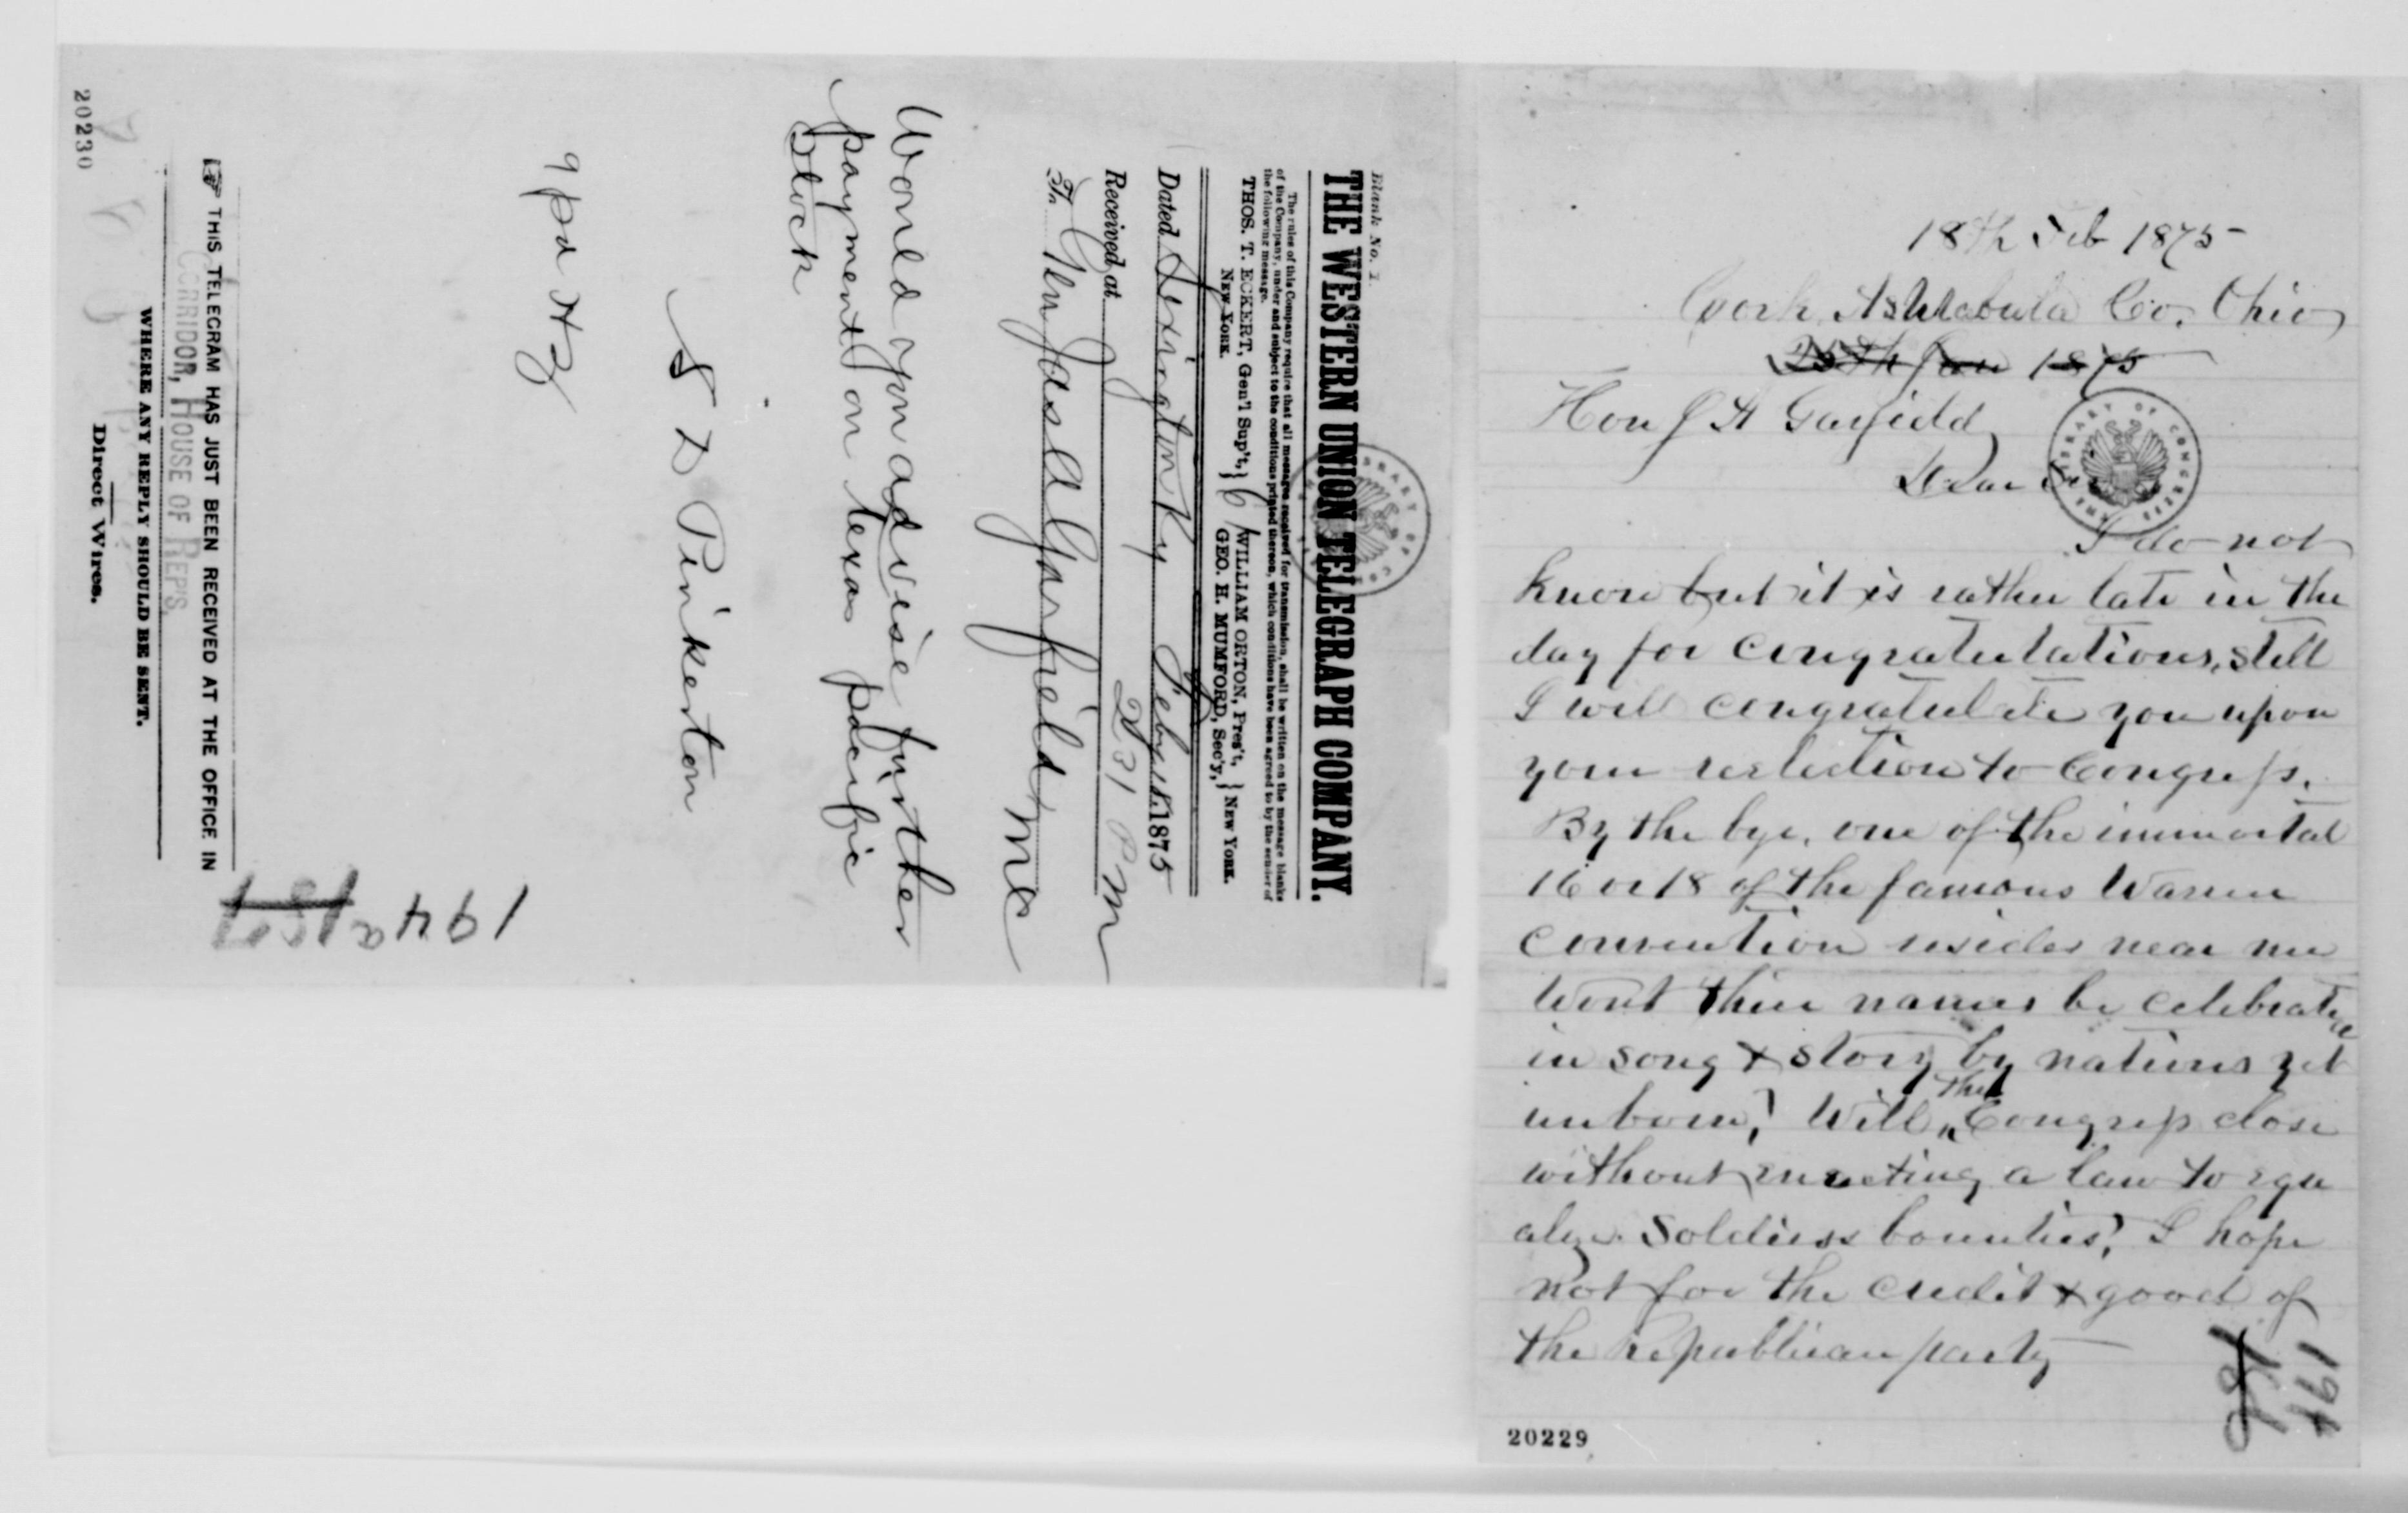 Blank No. 1.
THE WESTERN UNION TELEGRAPH COMPANY.
The rules of this Company require that all messages received for transmission, shall be written on the message blanks
of the Company, under and subject to the conditions printed thereon, which conditions have been agreed to by the sender of
the following message.
THOS. T. ECKERT, Gen'l Sup't, } 6 { WILLIAM ORTON, Pres't, } NEW YORK.
NEW YORK. GEO. H. MUMFORD, Sec'y,
Dated Lexington Ky Feby 18 1875
Received at 231 Pm
To Genl Jas A Garfield MC
Would you advise further
payment on texas pacific
Stock
S D Pinkerton
9 pd
THIS TELEGRAM HAS JUST BEEN RECEIVED AT THE OFFICE IN
CORRIDOR, HOUSE OF REP'S.
WHERE ANY REPLY SHOULD BE SENT.
Direct Wires.
20230
194a 187
18th Feb 1875
Ashtabula Co. Ohio
25th Jan 1875
Hon J A Garfield
Dear Sir
LIBRARY OF CONGRESS
I do not
know but it is rather late in the
day for congratulations, still
I will congratulate you upon
your reelection to Congress.
By the bye, one of the immortal
16 or 18 of the famous Warren
convention resides near me
Wont their names be celebrated
in song & story by nations yet
unborn? Will this Congress close
without enacting a law to equ
alize Soldiers bounties? I hope
not for the credit & good of
the Republican party
194
186
20229